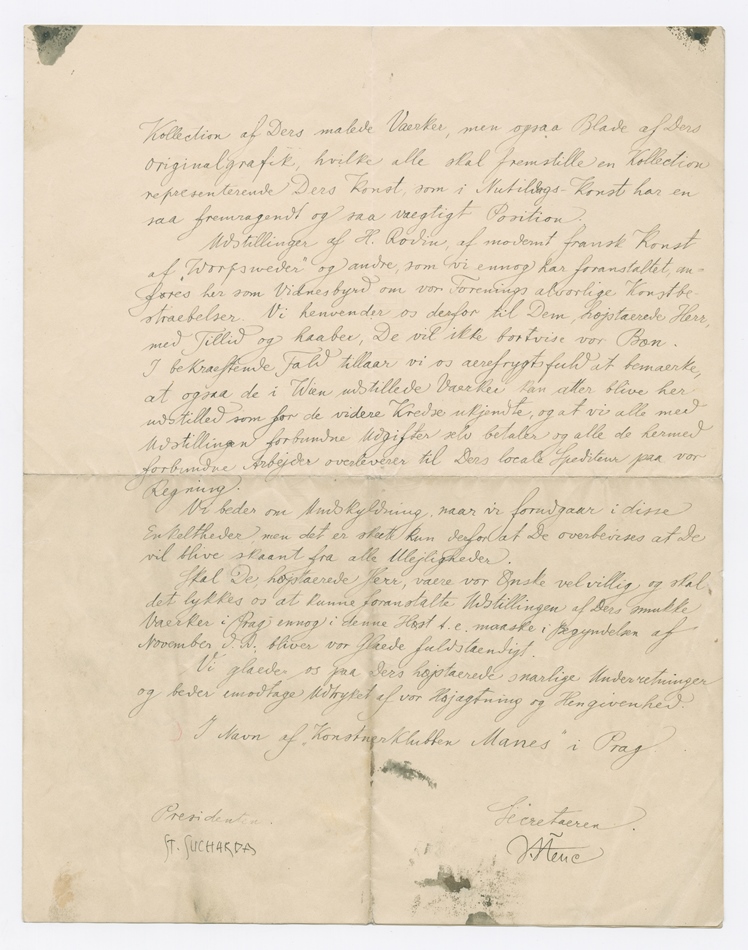 Kollection af Ders malede Vaerker, men ogsaa Blade af Ders
originalgrafik, hvilke alle skal fremstille en Kollection
representerende Ders Konst, som i Nutidags-Konst har en
saa fremragendt og saa vaegtigt Position.
Udstillinger af H. Rodin, af modernt fransk Konst
af "Worpsweder" og andre, som vi ennog har foranstaltet, an-
føres her som Vidnesbyrd om vor Forenings alvorlige Konstbe-
straebelser. Vi henvender os derfor til Dem, højstaerede Herr,
med Tillid og haaber, De vil ikke bortvise vor Bøn.
I bekraeftende Fald tillaar vi os aerefrygtsfuld at bemaerke,
at ogsaa de i Wien udstillede Vaerker kan aller blive her
udstilled som for de videre Kredse ukjendte, og at vi alle med
Udstillingen forbundne Udgifter selv betaler og alle de hermed
forbundne Arbejder overleverer til Ders locale Spediteur paa vor
Regning.
Vi beder om Undskyldning, naar vi forudgaar i disse
Enkeltheder men det er skett kun derfor at De overbevises at De
vil blive skaant fra alle Ulejligheder.
Skal De højstaerede Herr, vaere vor Ønske velvillig og skal
det lykkes os at kunne foranstalte Udstillingen af Ders smukke
Vaerker i Prag ennog i denne Høst t. e. maaske i Begyndelsen af
November d. A., bliver vor Glaede fuldstaendigt.
Vi glaeder os paa Ders højstaerede snarlige Underretninger
og beder emodtage Udtryket af vor Højagtning og Hengivenhed.
I Navn af "Konstnerklubben Manes" i Prag
Presidenten.
Secretaeren.
ST. SUCHARDA